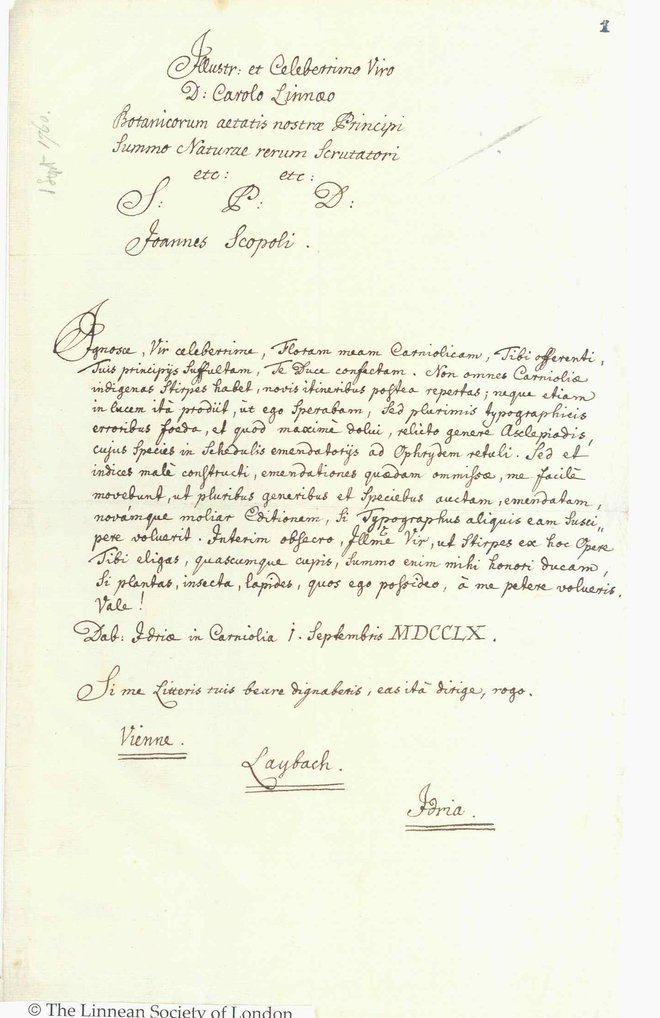 1
Illustr: et Celeberrimo Viro
D: Carolo Linnæo
Botanicorum aetatis nostræ Principi
Summo Naturae rerum Scrutatori
etc: etc:
S: P: D:
Joannes Scopoli.
1 Sept 1760.
Ignosce, Vir celeberrime, Floram meam Carniolicam, Tibi offerenti,
Tuis principijs suffultam, Te Duce confectam. Non omnes Carnioliæ
indigenas Stirpes habet, novis itineribus postea repertas; neque etiam
in lucem ità prodiit, ùt ego Sperabam, sed plurimis typographicis
erroribus foeda, et quòd maximè dolui, relicto genere Asclepiadis,
cujus Species in Schedulis emendatorijs ad Ophrydem retuli. Sed et
indices malè constructi, emendationes quædam ommissæ, me facilè
movebunt, ut pluribus generibus et Speciebus auctam, emendatam,
novámque moliar Editionem, si Typographus aliquis eam Susci„
pere voluerit. Interim obsecro, Illme Vir, ut Stirpes ex hoc Opere
Tibi eligas, quascumque cupis, Summo enim mihi honori ducam,
Si plantas, insecta, lapides, quos ego possideo, à me petere volueris.
Vale!
Dab: Idriæ in Carniolia 1. Septembris MDCCLX.
Si me Litteris tuis beare dignaberis, eas ità dirige, rogo.
Vienne.
Laybach.
Idria.
© The Linnean Society of London